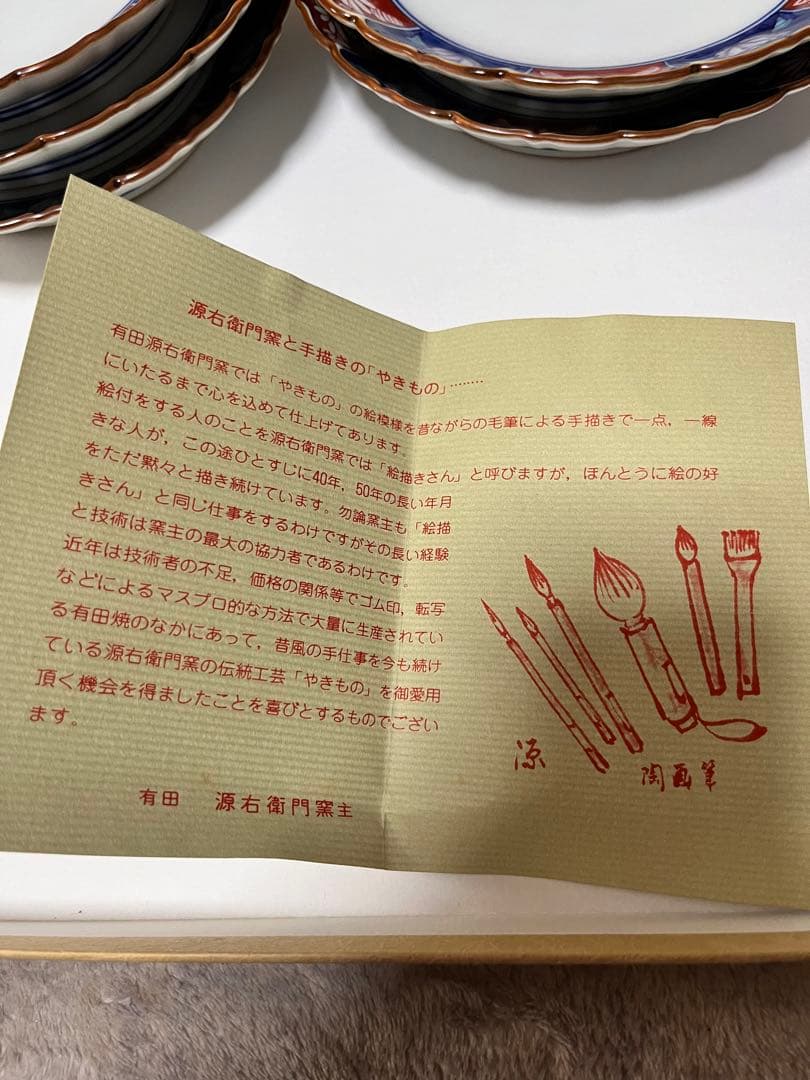 源右衛門窯と手描きの「やきもの」………
有田源右衛門窯では「やきもの」の絵模様を昔ながらの毛筆による手描きで一点，一線
にいたるまで心を込めて仕上げてあります。
絵付をする人のことを源右衛門窯では「絵描きさん」と呼びますが，ほんとうに絵の好
きな人が，この途ひとすじに40年，50年の長い年月
をただ黙々と描き続けています。勿論窯主も「絵描
きさん」と同じ仕事をするわけですがその長い経験
と技術は窯主の最大の協力者であるわけです。
近年は技術者の不足，価格の関係等でゴム印，転写
などによるマスプロ的な方法で大量に生産されてい
る有田焼のなかにあって，昔風の手仕事を今も続け
ている源右衛門窯の伝統工芸「やきもの」を御愛用
頂く機会を得ましたことを喜びとするものでござい
ます。
有田　源右衛門窯主
源
陶画筆